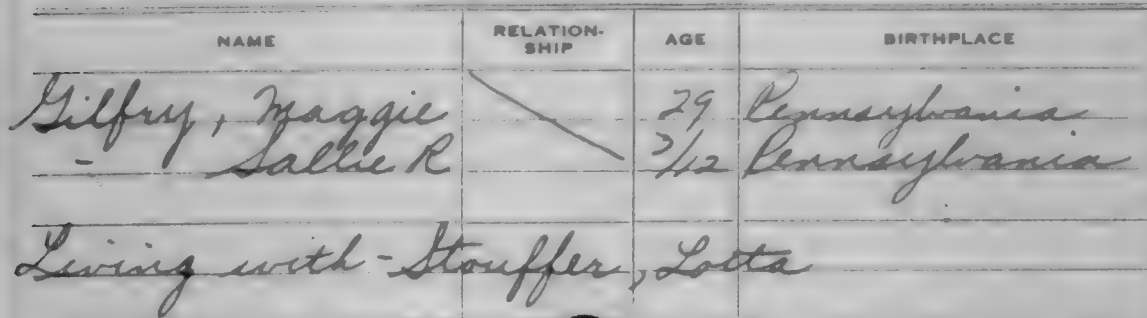 NAME RELATION-SHIP AGE BIRTHPLACE
Gilfry, Maggie 29 Pennsylvania
- Sallie R 3/12 Pennsylvania
Living with - Stouffer, Lotta